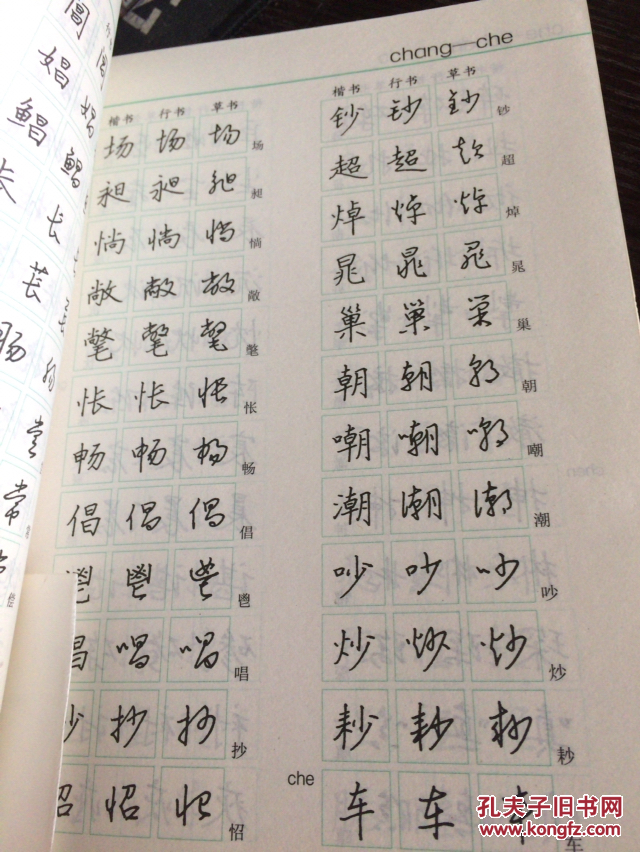 chang—che
楷书 行书 草书
场 场 场 场
昶 昶 昶 昶
惝 惝 惝 惝
敞 敞 敞 敞
氅 氅 氅 氅
怅 怅 怅 怅
畅 畅 畅 畅
倡 倡 倡 倡
鬯 鬯 鬯 鬯
唱 唱 唱 唱
抄 抄 抄 抄
怊 怊 怊 怊
楷书 行书 草书
钞 钞 钞 钞
超 超 超 超
焯 焯 焯 焯
晁 晁 晁 晁
巢 巢 巢 巢
朝 朝 朝 朝
嘲 嘲 嘲 嘲
潮 潮 潮 潮
吵 吵 吵 吵
炒 炒 炒 炒
耖 耖 耖 耖
che
车 车 车 车
孔夫子旧书网
www.kongfz.com